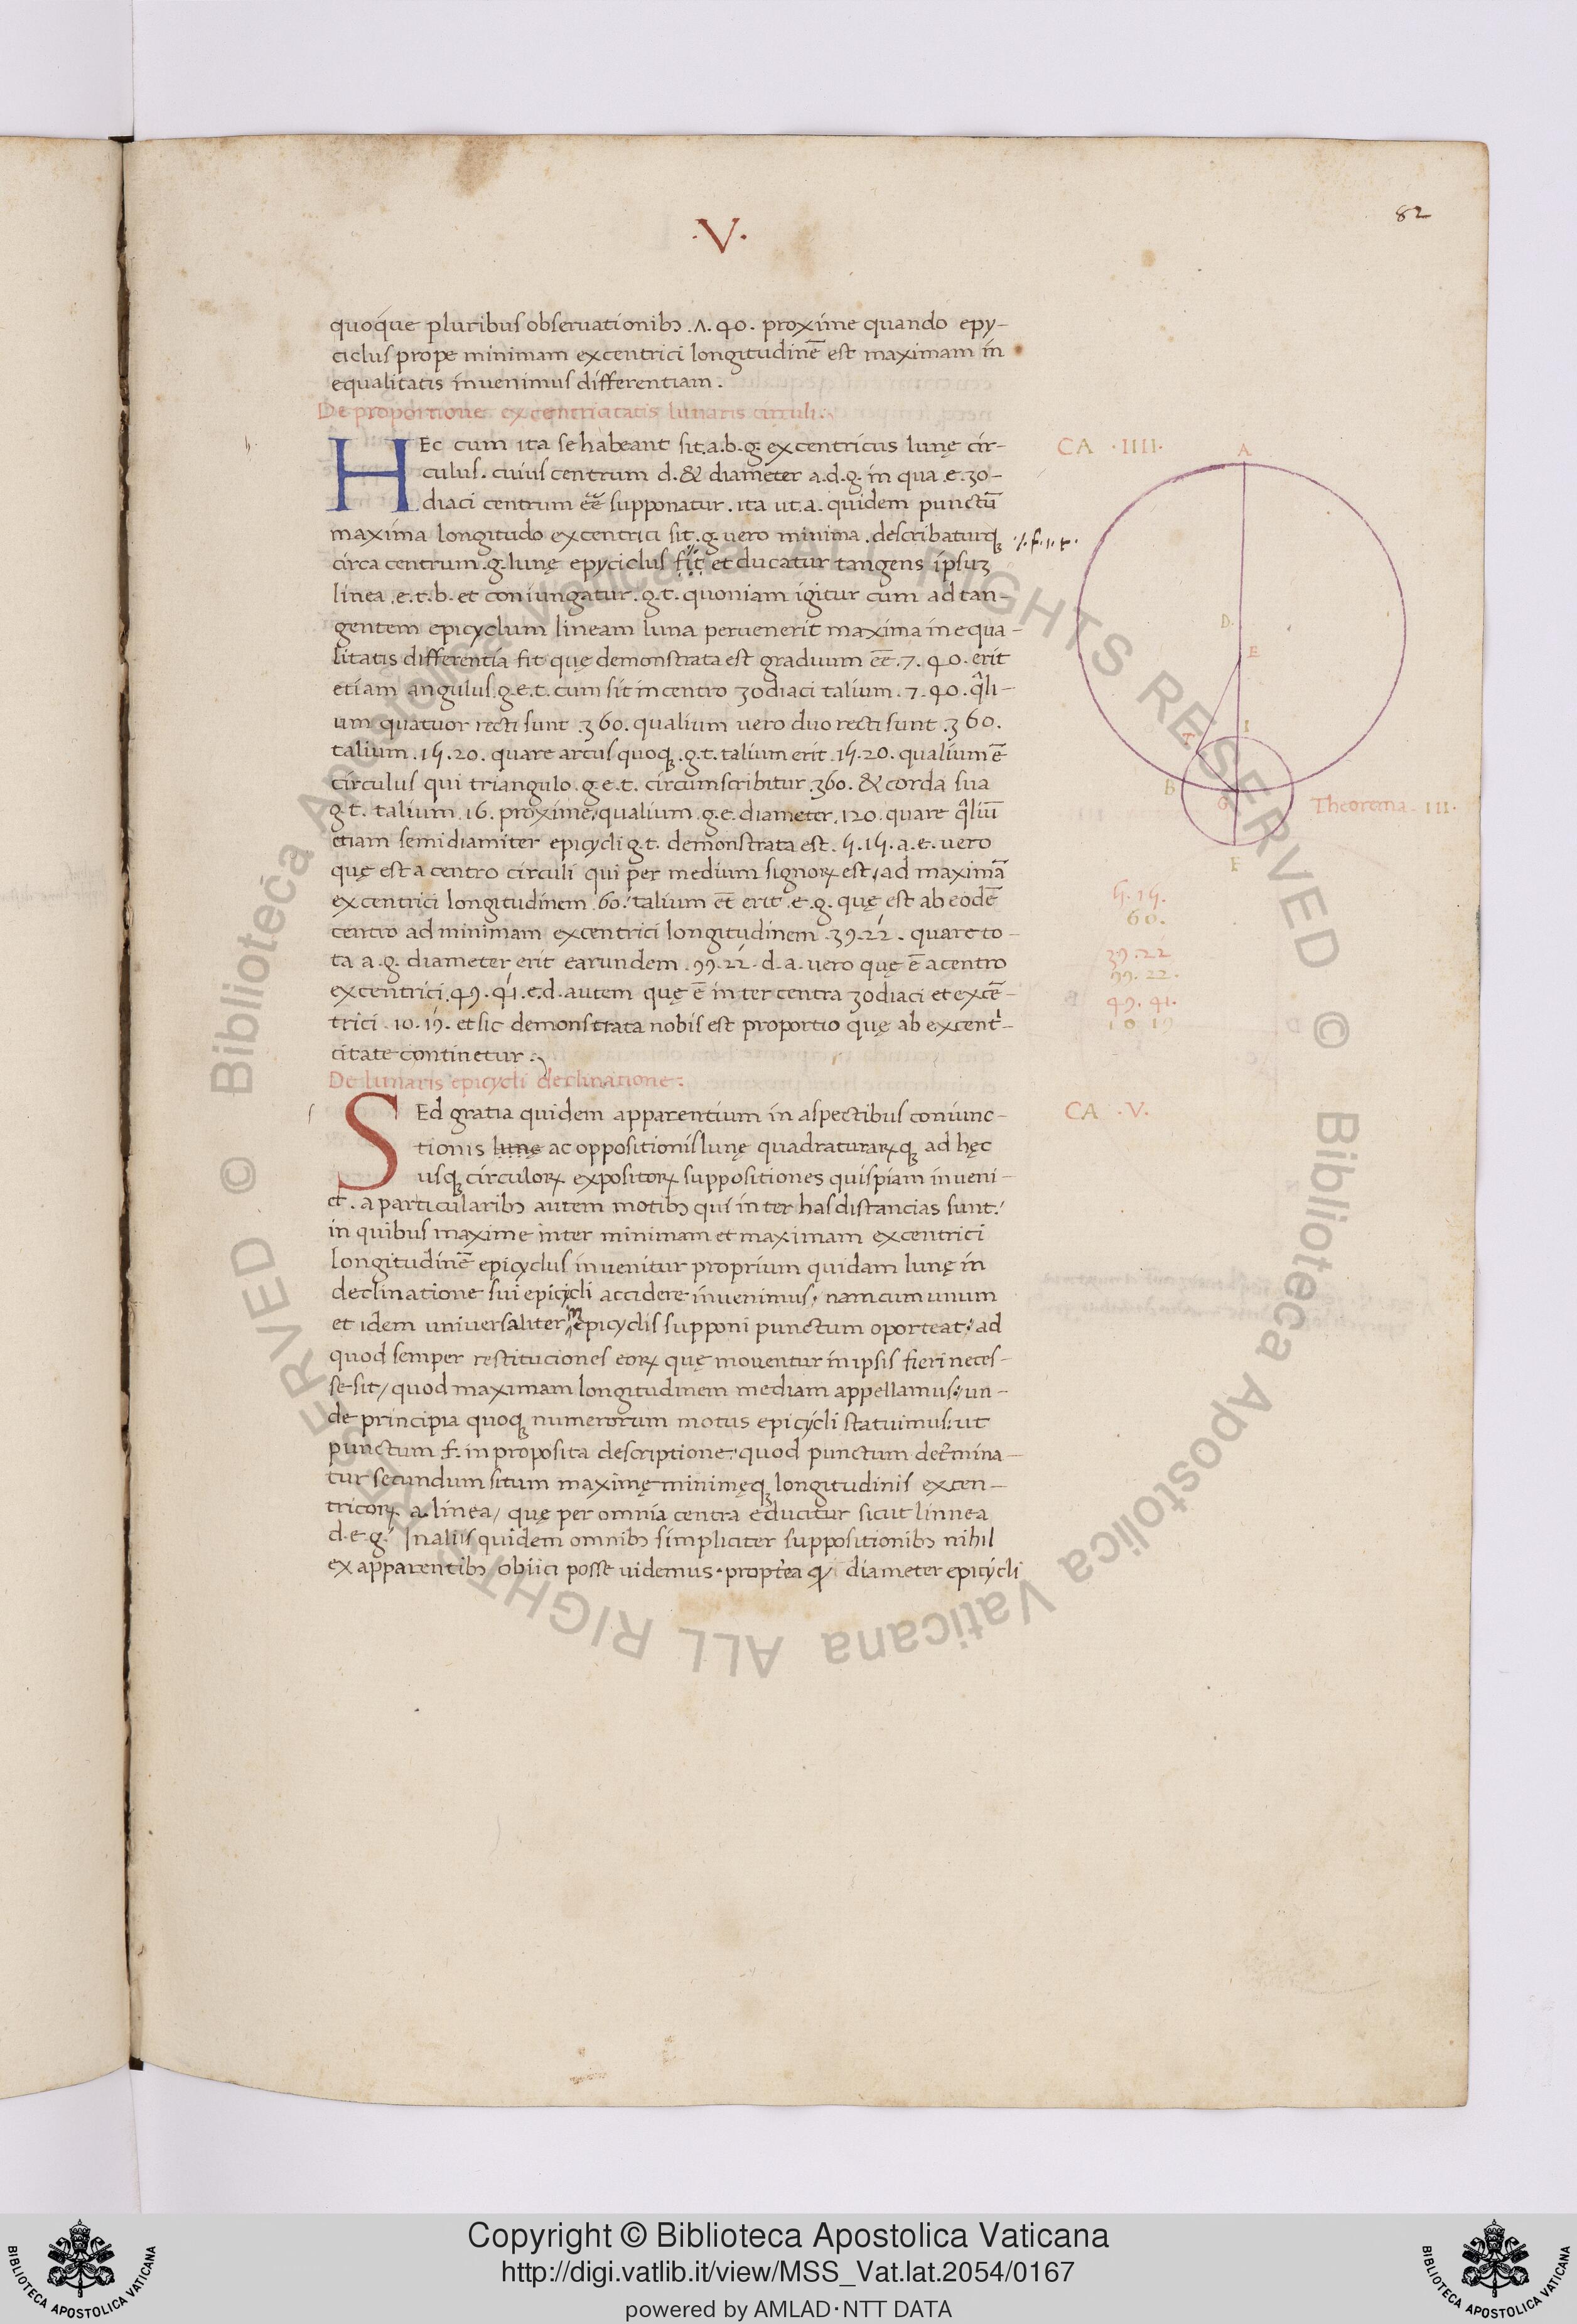 82
·V·
quoque pluribus obseruationibꝫ .Λ. 40. proxime quando epy-
ciclus prope minimam excentrici longitudinē est maximam in
equalitatis inuenimus differentiam.
De proportione excentricitatis lunaris circuli.
HEc cum ita se habeant sit .a.b.g. excentricus lunę cir-
culus. cuius centrum d. & diameter a.d.g. in qua .e. zo-
diaci centrum eē supponatur. ita ut .a. quidem punctū
maxima longitudo excentrici sit .g. uero minima. describaturqꝫ
circa centrum .g. lunę epyciclus fit et ducatur tangens ipsuꝫ
linea .e.t.b. et coniungatur .g.t. quoniam igitur cum ad tan-
gentem epicyclum lineam luna peruenerit maxima inequa-
litatis differentia fit quę demonstrata est graduum eē .7. 40. erit
etiam angulus .g.e.t. cum sit in centro zodiaci talium .7. 40. q̄li-
um quatuor recti sunt .360. qualium uero duo recti sunt .360.
talium .15.20. quare arcus quoqꝫ .g.t. talium erit .15.20. qualium ē
circulus qui triangulo .g.e.t. circumscribitur .360. & corda sua
g.t. talium .16. proxime, qualium .g.e. diameter .120. quare q̄liū
etiam semidiamiter epicycli g.t. demonstrata est .5.15. a.e. uero
quę est a centro circuli qui per medium signoꝝ est, ad maximā
excentrici longitudinem .60. talium et̄ erit .e.g. quę est ab eodē
centro ad minimam excentrici longitudinem .39.22. quare to-
ta a.g. diameter erit earundem .99.22. d.a. uero quę ē a centro
excentrici .49.41. e.d. autem quę ē inter centra zodiaci et excē-
trici .10.19. et sic demonstrata nobis est proportio quę ab excentⁱ-
citate continetur.
De lunaris epicycli declinatione:
SEd gratia quidem apparentium in aspectibus coniunc-
tionis lunę ac oppositionis lunę quadraturaꝝqꝫ ad hęc
usqꝫ circuloꝝ expositoꝝ suppositiones quispiam inueni-
et. a particularibꝫ autem motibꝫ qui inter has distancias sunt:
in quibus maxime inter minimam et maximam excentrici
longitudinē epicyclus inuenitur proprium quidam lunę in
declinatione sui epicicli accidere inuenimus, nam cum unum
et idem uniuersaliter in epicyclis supponi punctum oporteat: ad
quod semper restituciones eoꝝ quę mouentur in ipsis fieri neces-
se sit, quod maximam longitudinem mediam appellamus: un-
de principia quoqꝫ numerorum motus epicycli statuimus: ut
punctum .f. in proposita descriptione: quod punctum det̄mina-
tur secundum situm maximę minimęqꝫ longitudinis excen-
tricoꝝ a linea, quę per omnia centra educitur sicut linnea
d.e.g. In aliis quidem omnibꝫ simpliciter suppositionibꝫ nihil
ex apparentibꝫ obiici posse uidemus. propt̄ea ꝙ diameter epicycli
CA ·IIII·
A
D
E
I
T
B
G
F
·/. f.i.t.
Theorema · III·
5.15.
60.
39.22
99.22.
49.41.
10 19
CA ·V·
Copyright © Biblioteca Apostolica Vaticana
http://digi.vatlib.it/view/MSS_Vat.lat.2054/0167
powered by AMLAD·NTT DATA
BIBLIOTECA APOSTOLICA VATICANA
BIBLIOTECA APOSTOLICA VATICANA
© Biblioteca Apostolica Vaticana ALL RIGHTS RESERVED © Biblioteca Apostolica Vaticana ALL RIGHTS RESERVED